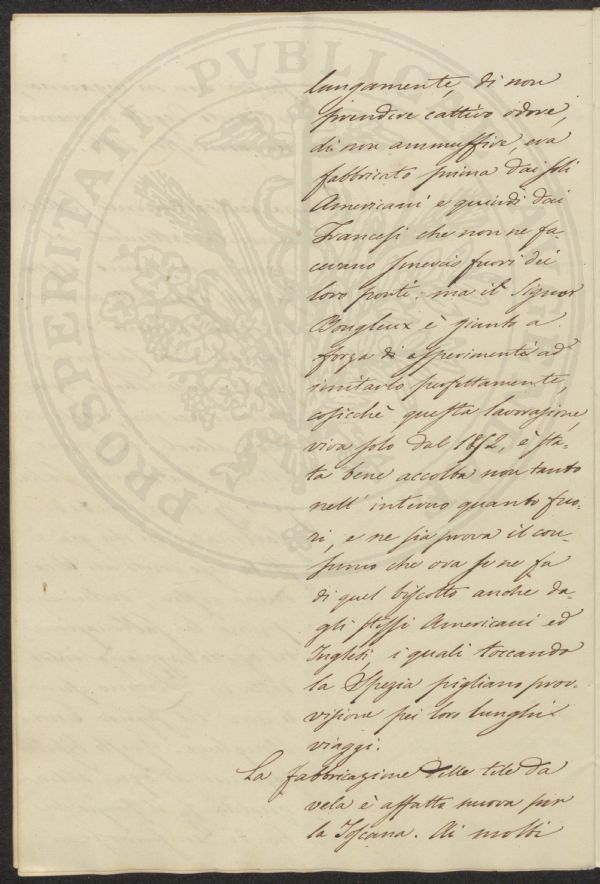 lungamente, di non
prendere cattivo odore,
di non ammuffire, era
fabbricato prima dai soli
Americani e quindi dai
Francesi che non ne fa-
cevano smercio fuori dei
loro porti: ma il Signor
è giunto a
forza di esperimenti ad
imitarlo perfettamente,
cosicchè questa lavorazione,
viva solo dal 1852, è sta-
ta bene accolta non tanto
nell' interno quanto fuo-
ri, e ne sia prova il con-
sumo che ora se ne fa
di quel biscotto anche da-
gli stessi Americani ed
Inglesi, i quali toccando
la Spezia pigliano prov-
visione pei loro lunghi
viaggi.
La fabbricazione delle tele da
vela è affatto nuova per
la Toscana. Ai molti
PROSPERITATI PVBLICAE